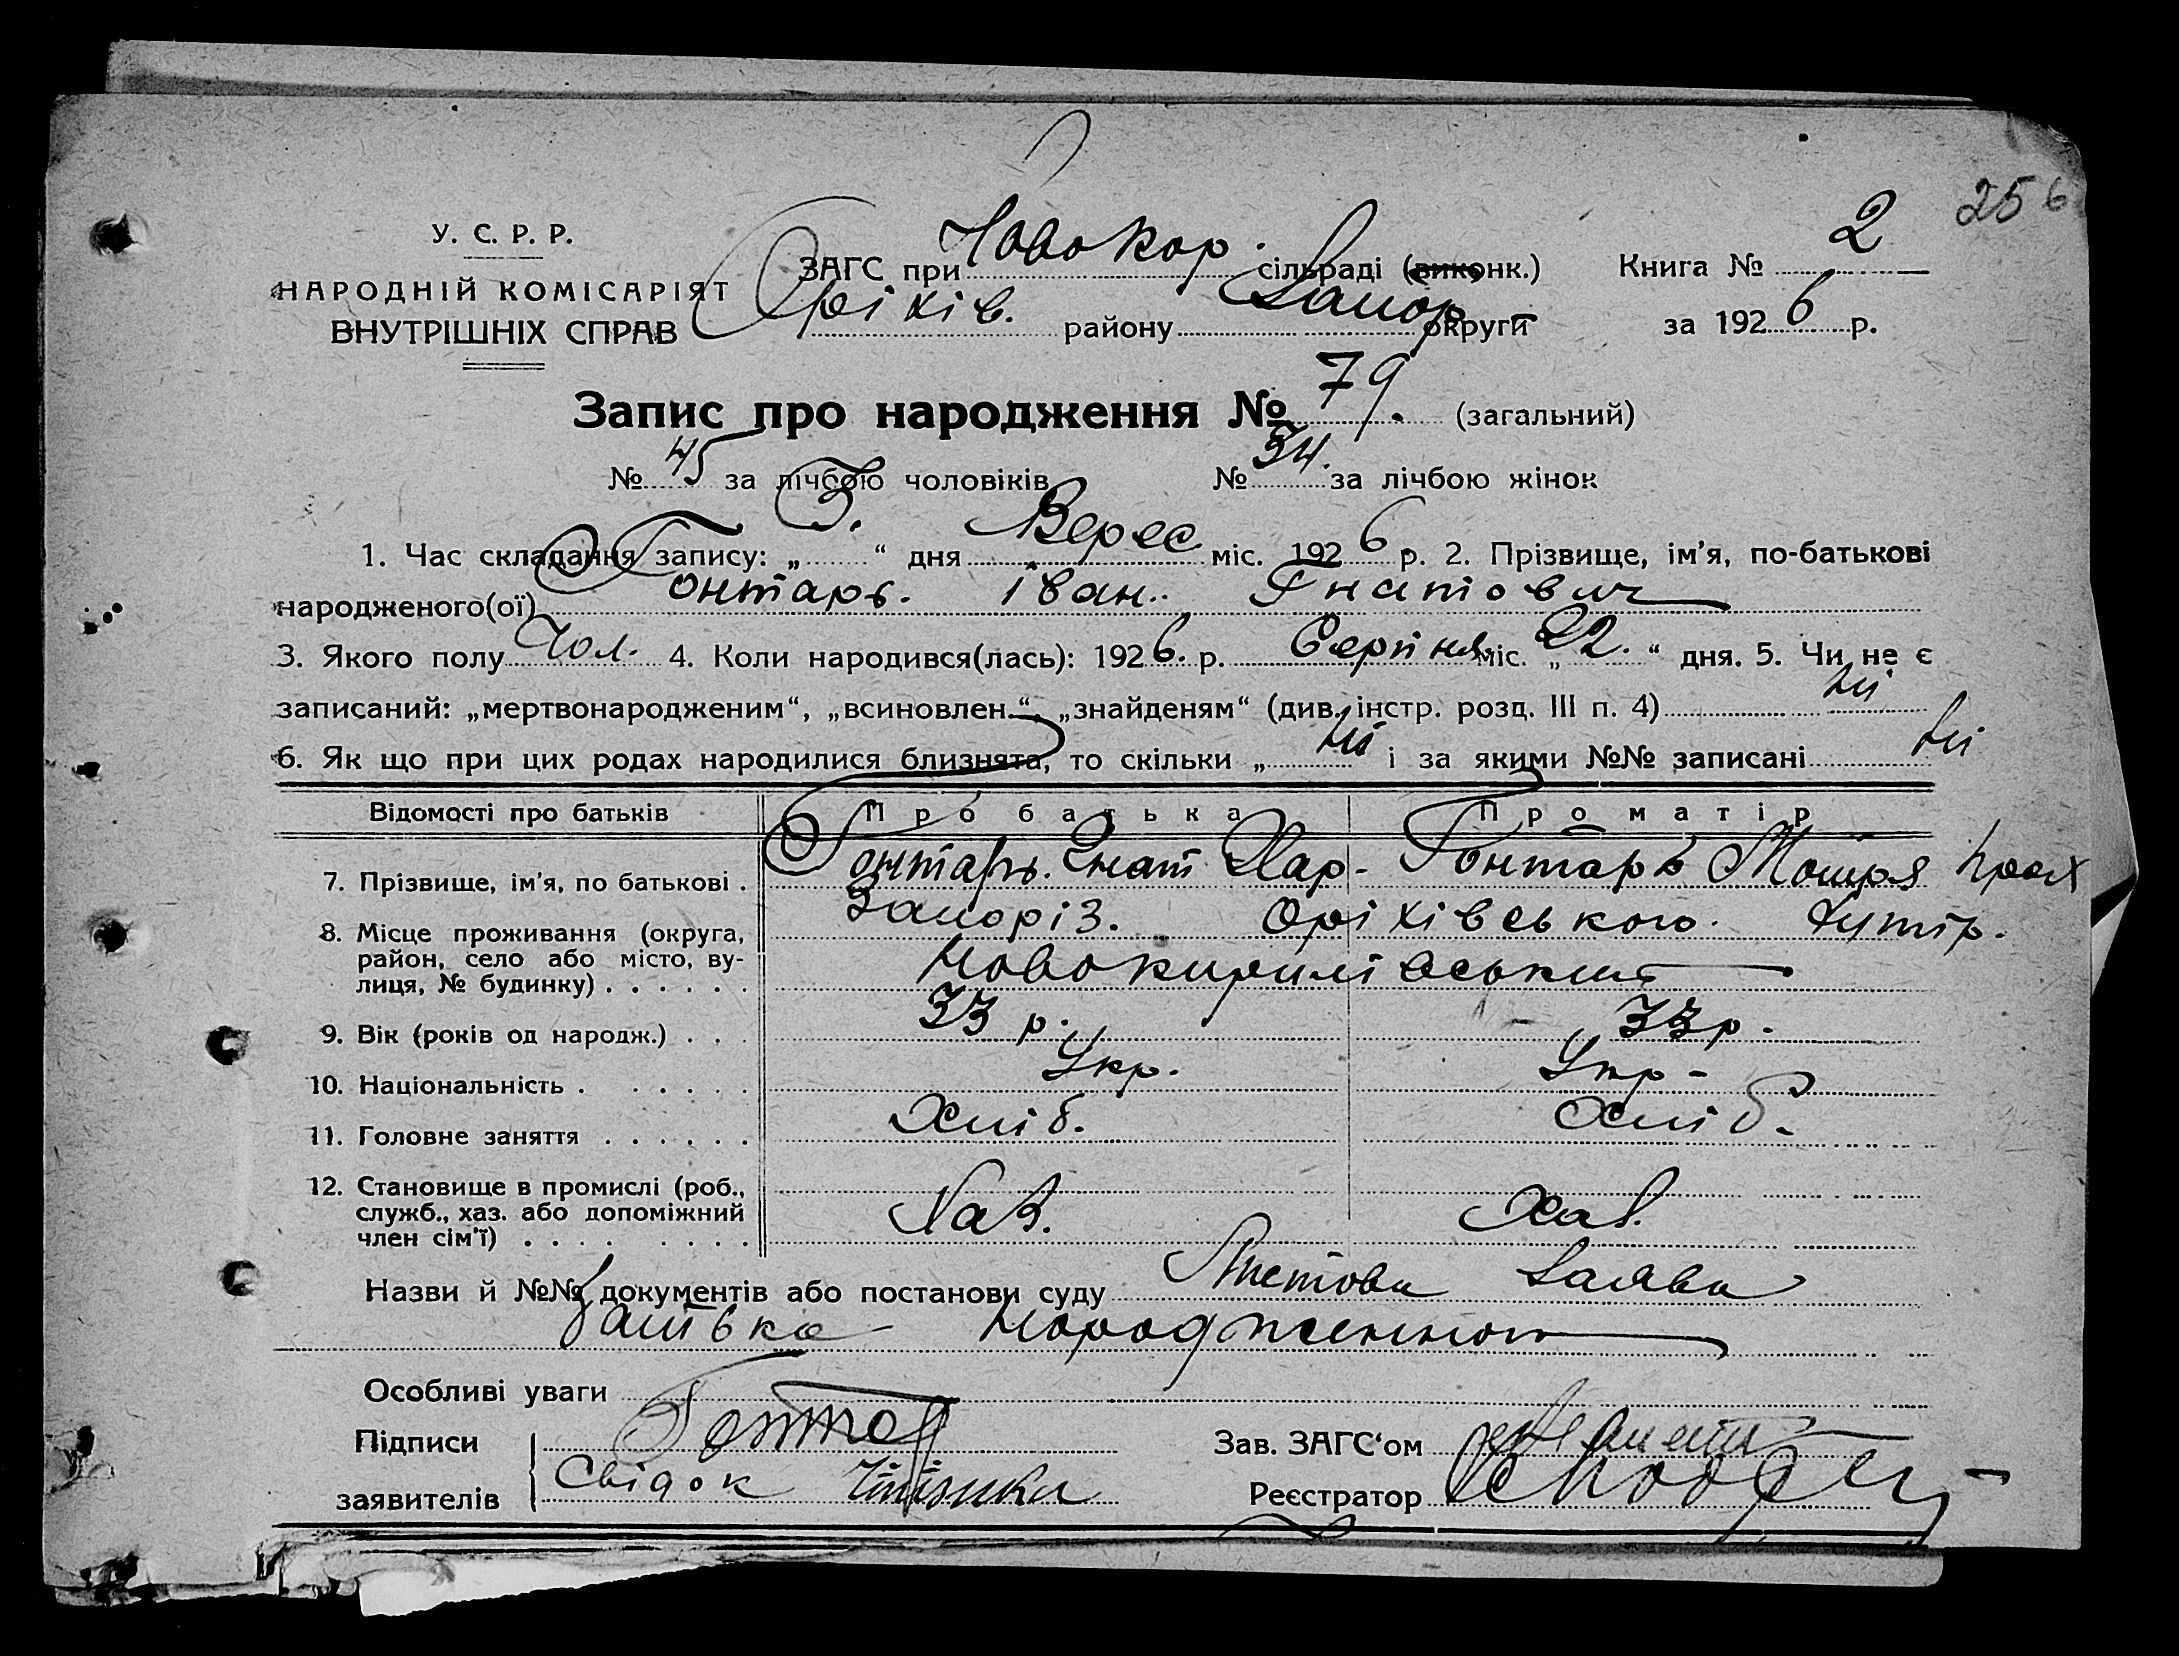 256
У. С. Р. Р.
НАРОДНІЙ КОМІСАРІЯТ
ВНУТРІШНІХ СПРАВ
ЗАГС при Новокар. сільраді (виконк.) Книга № 2
Оріхів. району Запор. округи за 1926 р.
Запис про народження № 79. (загальний)
№ 45 за лічбою чоловіків № 34. за лічбою жінок
1. Час складання запису: „ 3. “ дня Верес міс. 1926 р. 2. Прізвище, ім’я, по-батькові
народженого(ої) Гонтарь. Іван. Гнатович
3. Якого полу Чол. 4. Коли народився(лась): 1926. р. Серпня міс. „ 22. “ дня. 5. Чи не є
записаний: „мертвонародженим“, „всиновлен.“, „знайденям“ (див. інстр. розд. III п. 4) ні
6. Як що при цих родах народилися близнята, то скільки „ ні і за якими №№ записані ні
Відомості про батьків Про батька Про матір
7. Прізвище, ім’я, по батькові . Гонтарь. Гнат Хар- Гонтарь Мотря
8. Місце проживання (округа, Запоріз. Оріхівського. Хутір.
район, село або місто, ву- Новокирилівський
лиця, № будинку) . . . . . .
9. Вік (років од народж.) . . . 33 р. 33 р.
10. Національність . . . . . . Укр. Укр-
11. Головне заняття . . . . . . Хліб. Хліб.
12. Становище в промислі (роб., служб., хаз. або допоміжний член сім’ї) . . . . . . . . Хаз. Хаз.
Назви й №№ документів або постанови суду Листова Заява
батька народженног
Особливі уваги
Підписи Гонтар Зав. ЗАГС‘ом
заявителів Свідок Реєстратор